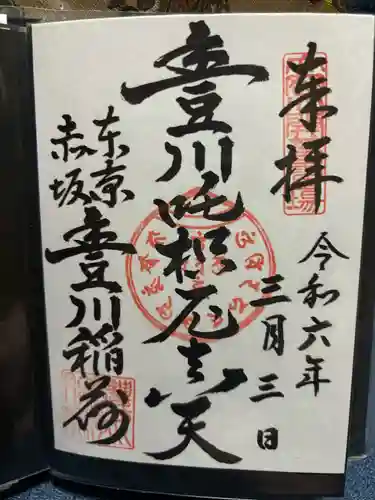 奉拝
令和六年
三月三日
豊川吒枳尼真天
東京
赤坂
豊川稲荷